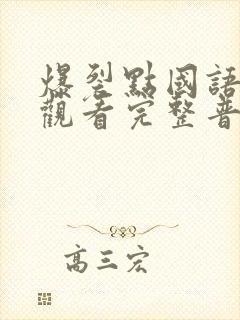 爆裂點國語
觀看完整普
高三宏